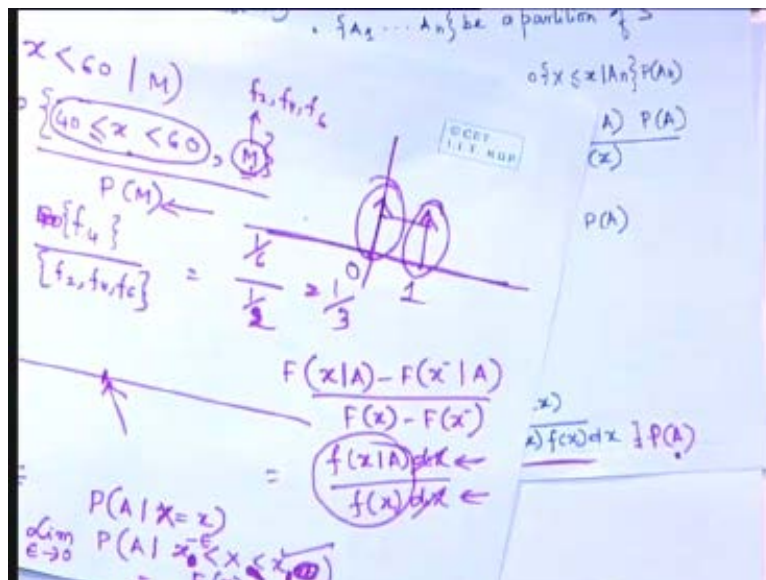 . {A1 ... An} be a partition of S
x < 60 | M)
{40 ≤ x < 60), M}
P(M) ←
f2, f4, f6
© CET
I.I.T. KGP
{x ≤ x | An} P(An)
A) P(A)
(x)
P(A)
{f4}
{f2, f4, f6}
= 1/6
1/2
= 1/3
0 1
F(x|A) - F(x⁻|A)
F(x) - F(x⁻)
= f(x|A) dx ←
f(x) dx ←
x)
x) f(x) dx } P(A)
=
P(A | X = x)
Lim P(A | x
ε→0